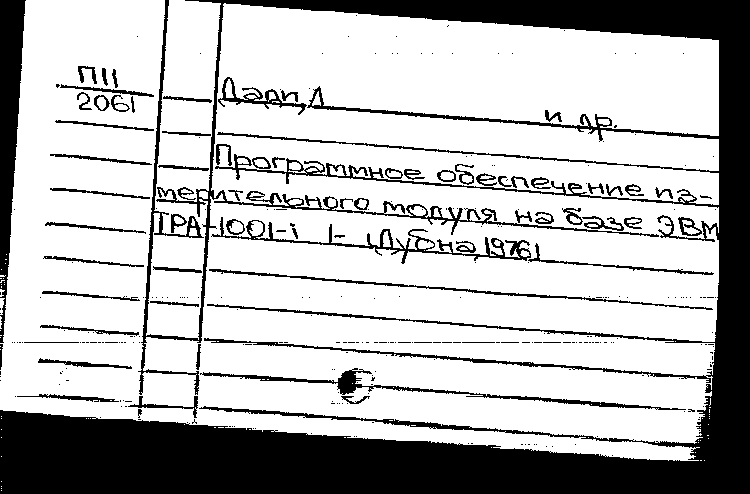 П11
2061
Дади, Д и др.
Программное обеспечение из-
мерительного модуля на базе ЭВМ
TPA-1001-i 1- (Дубна, 1976)